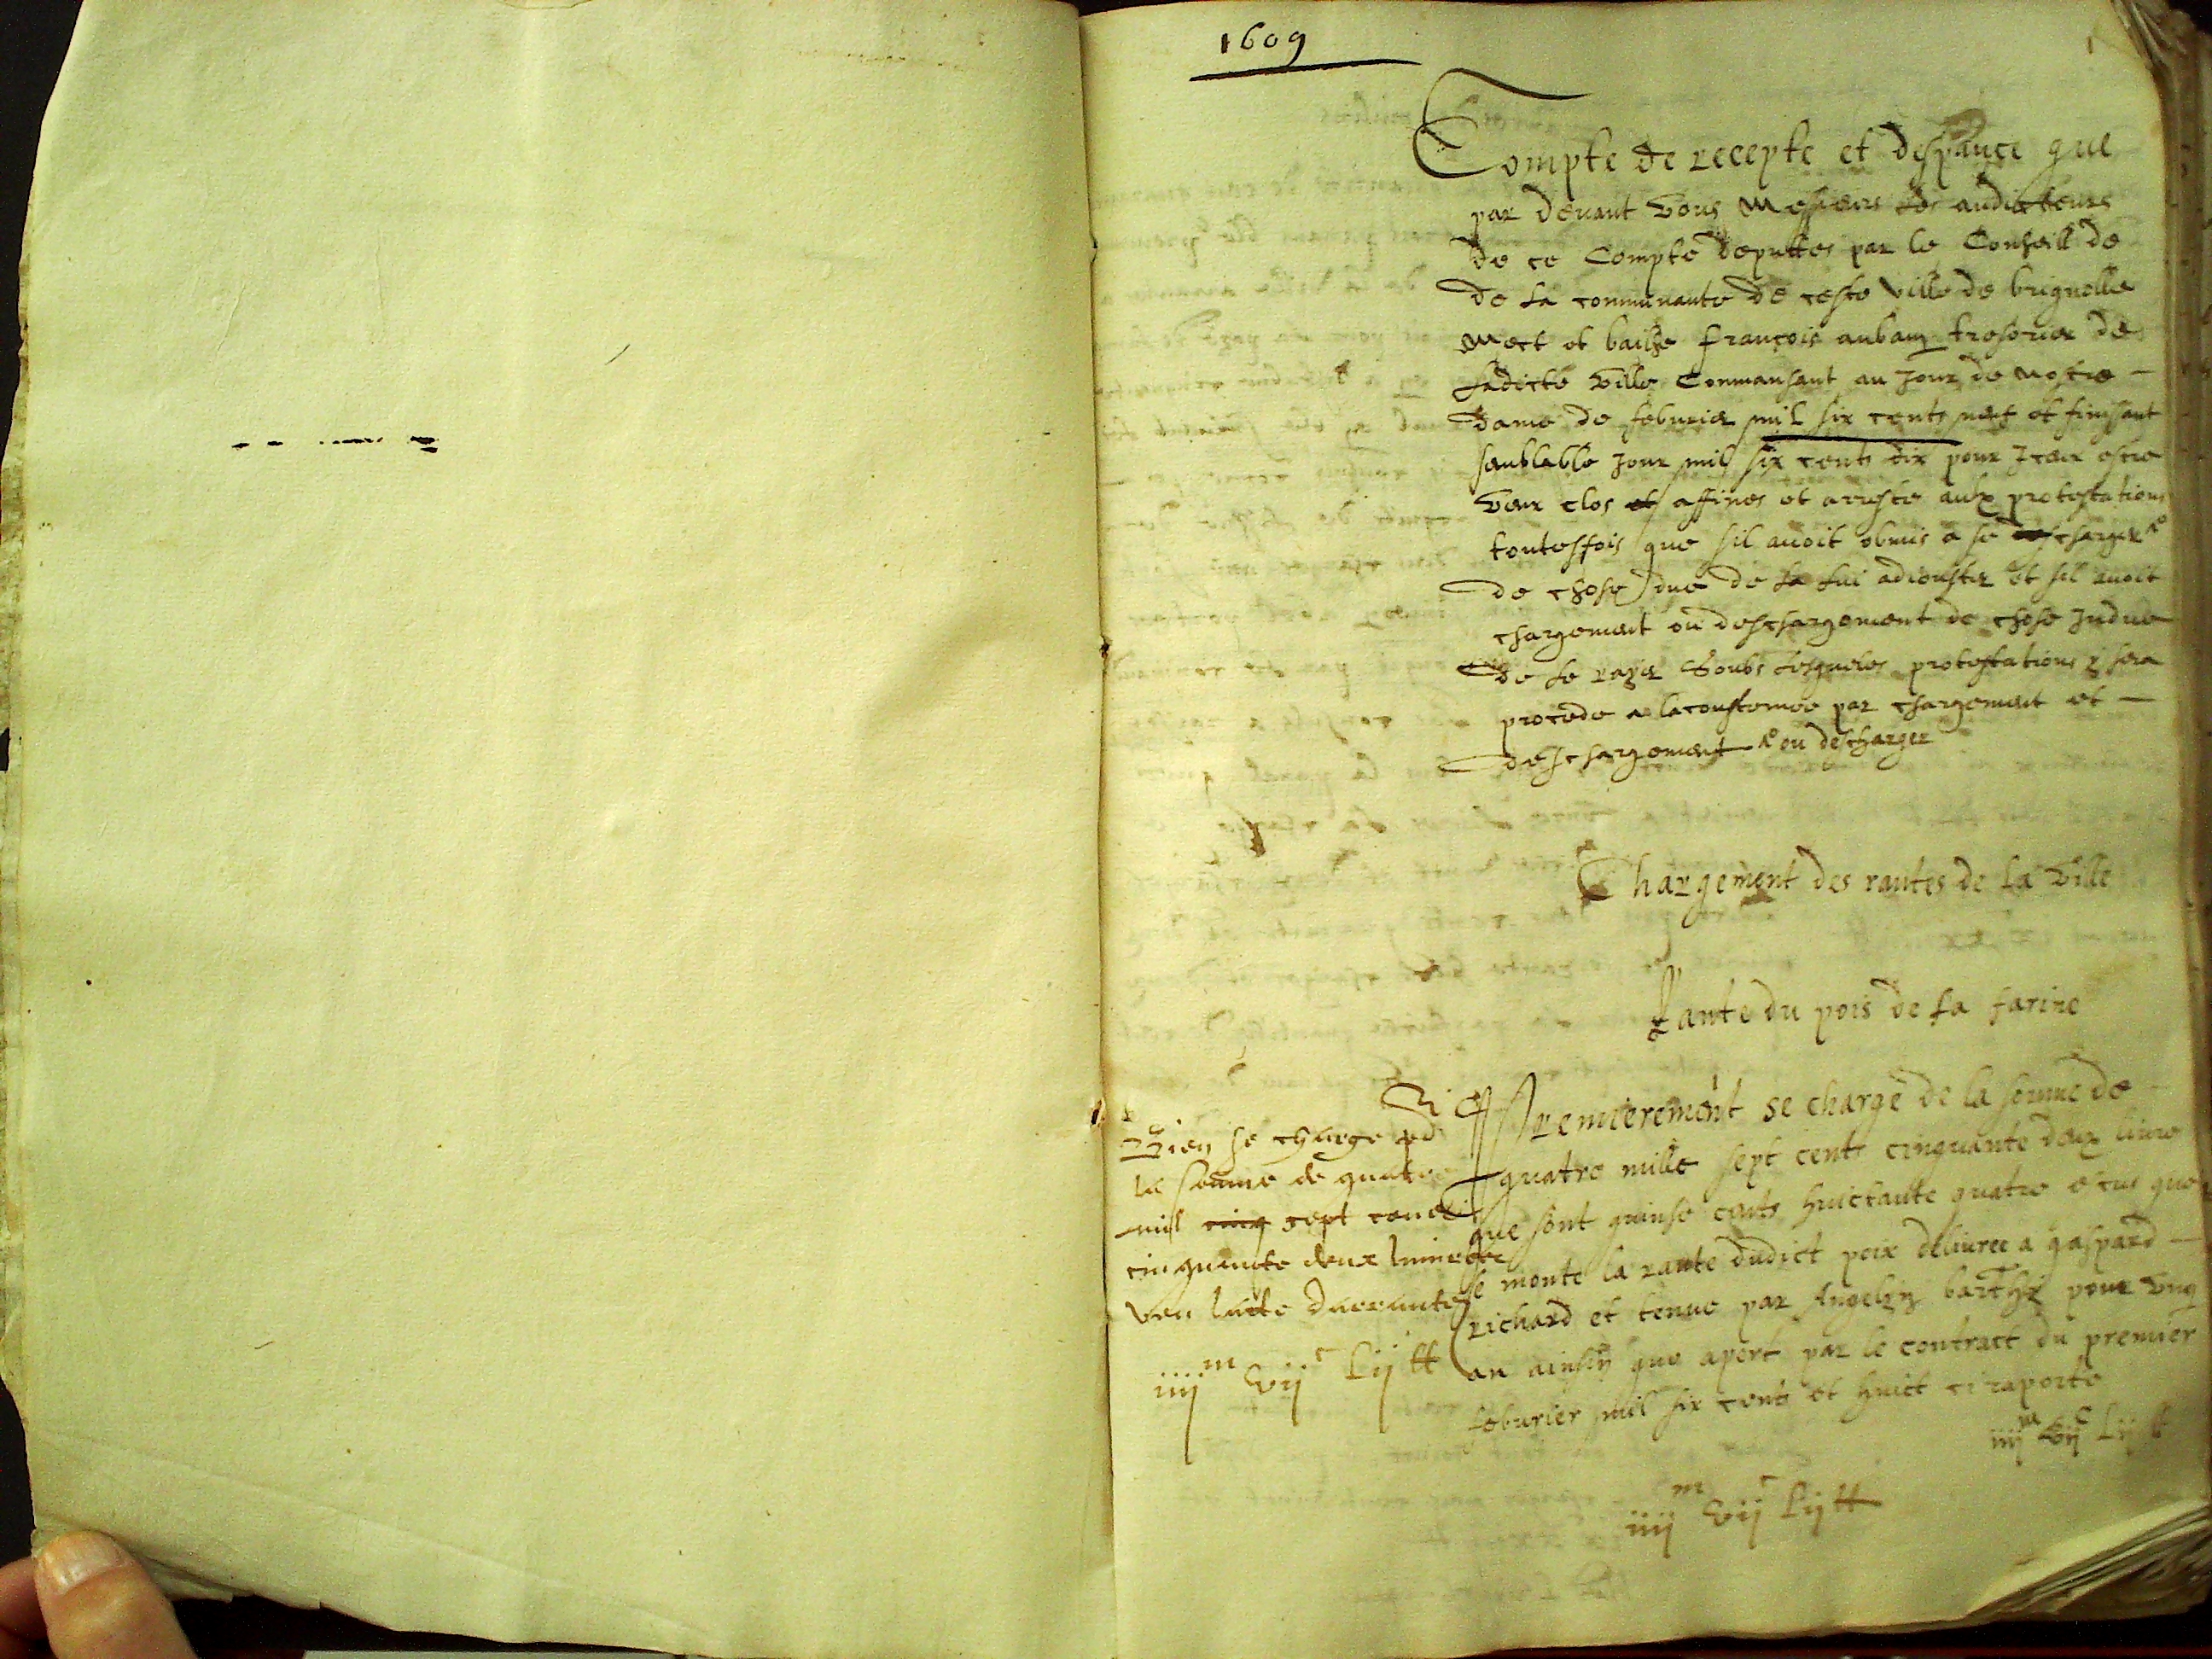 1609
Compte de recepte et despance que
par devant vous Messieurs les audicteurs
de ce Compte deputtes par le Conseill de
de la communaute de ceste ville de brignolle
Mect et bailhe françois aubany tresorier de
ladicte ville Commansant au jour de nostre
dame de feburier mil six cents neuf et finissant
semblable jour mil six cents dix pour Iceux estre
veux clos et affines et arreste aulx protestations
toutesfois que sil avoit obmis a se charger
de chose due de la lui adiouster et sil avoit
chargement ou deschargement de chose Indue
de le rayer soubs lesqueles protestations y sera
procede a lacoustumee par chargement et
deschargement ou descharger
Chargement des rantes de la ville
Rante du pois de la farine
Premierement se charge de la somme de
quatre mille sept cents cinquante deux livre
que sont quinse cents huictante quatre escus que
se monte la rante dudict poix delivree a gaspard
richard et tenue par Angelin barthy pour ung
an ainsin que apert par le contract du premier
feburier mil six cents et huict ci raporte
iiij m vij c Lij lt
Bien se charge
la somme de quatre
mil cinq sept cent
cinquante deux livres
veu lacte darrante
iiij m vij c Lij tt
iiij m vij c Lij tt